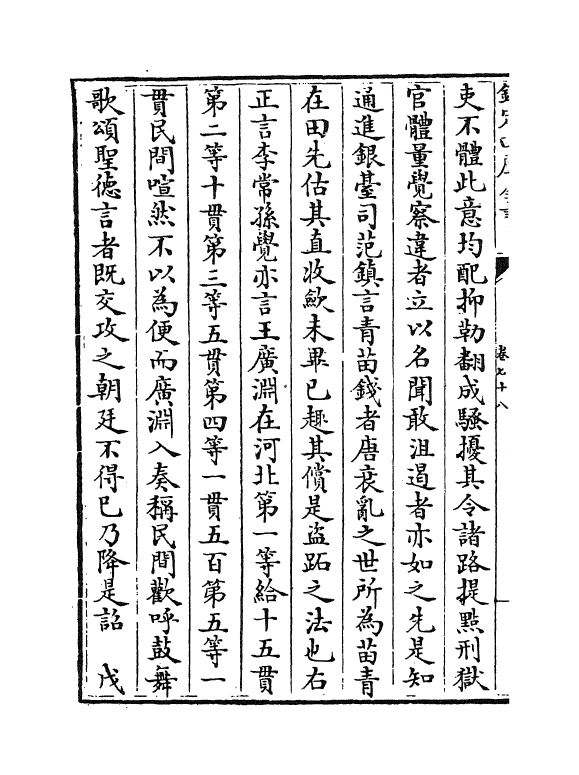 欽定四庫全書
卷七十八
吏不體此意均配抑勒翻成騷擾其令諸路提㸃刑獄
官體量覺察違者立以名聞敢沮遏者亦如之先是知
通進銀臺司范鎮言青苗錢者唐衰亂之世所為苗青
在田先估其直收斂未畢已趣其償是盜跖之法也右
正言李常孫覺亦言王廣淵在河北第一等給十五貫
第二等十貫第三等五貫第四等一貫五百第五等一
貫民間喧然不以為便而廣淵入奏稱民間歡呼鼓舞
歌頌聖德言者既交攻之朝廷不得已乃降是詔　戊